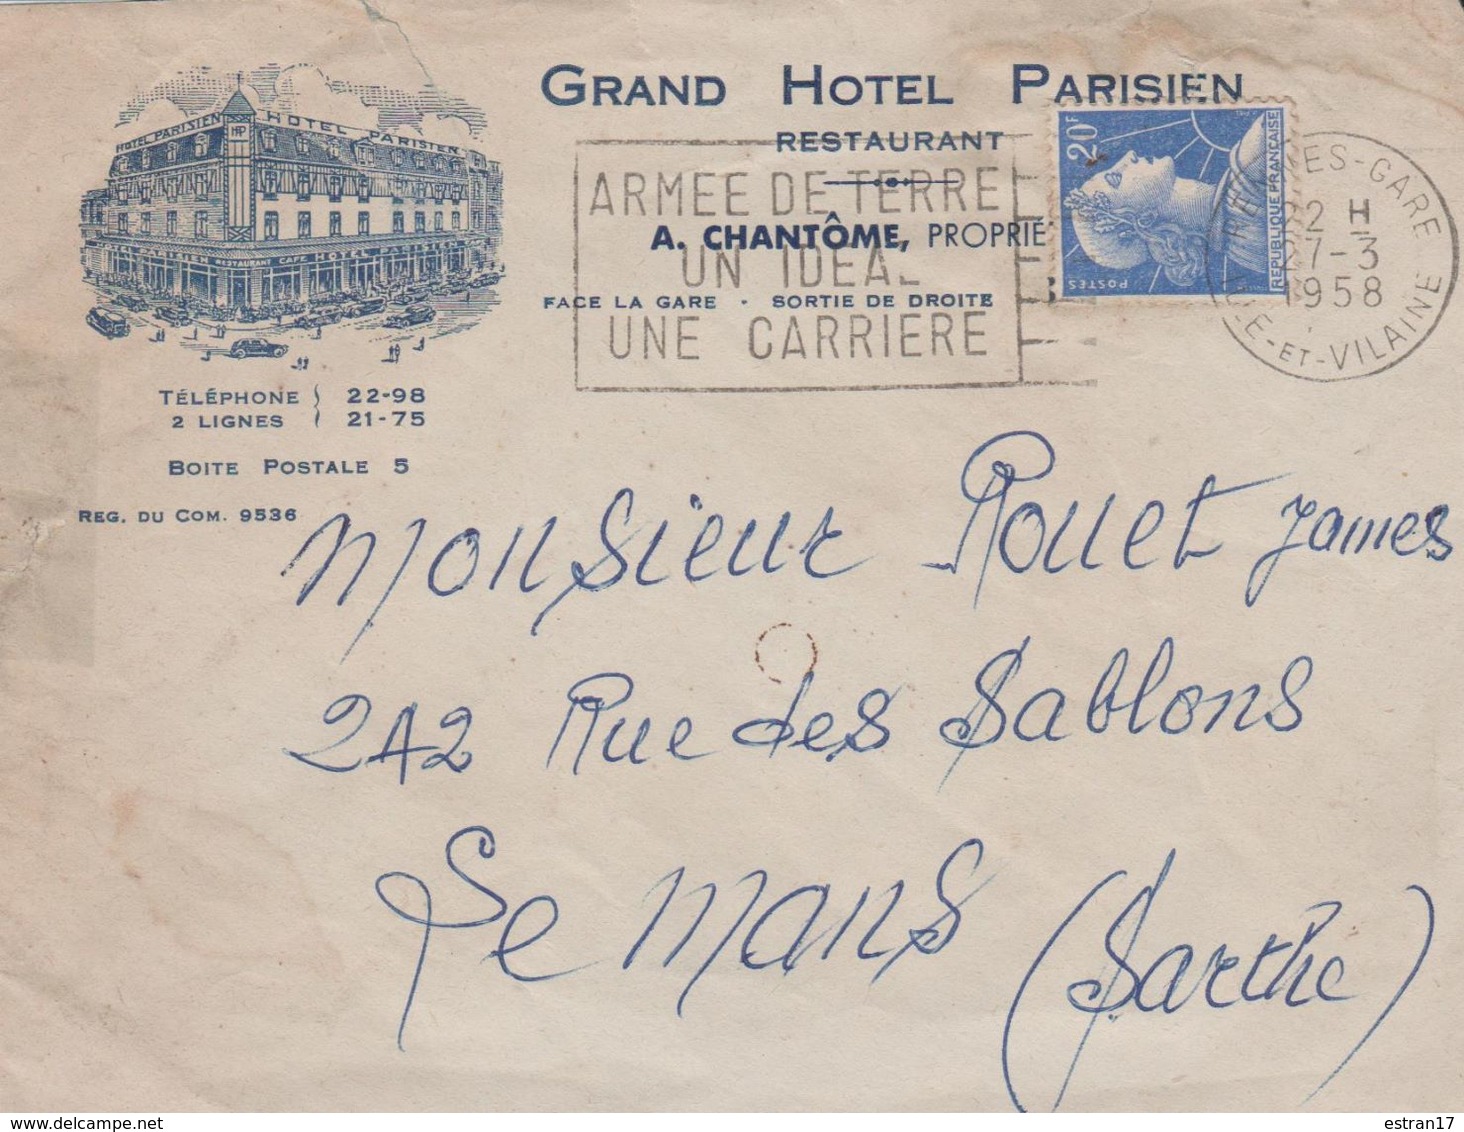 GRAND HOTEL PARISIEN
RESTAURANT
A. CHANTÔME, PROPRIÉ
FACE LA GARE · SORTIE DE DROITE
HOTEL PARISIEN
HP
HOTEL PARISIEN
PARISIEN RESTAURANT CAFE HOTEL
TÉLÉPHONE 22-98
2 LIGNES 21-75
BOITE POSTALE 5
REG. DU COM. 9536
ARMEE DE TERRE
UN IDEAL
UNE CARRIERE
20F
REPUBLIQUE FRANÇAISE
POSTES
RENNES-GARE
22 H
7-3
1958
ILLE-ET-VILAINE
Monsieur Rouet James
242 Rue des Sablons
Le Mans (Sarthe)
delcampe.net
estran17